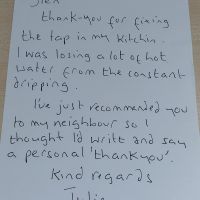 thank-you for fixing
the tap in my kitchin.
I was losing a lot of hot
water from the constant
dripping.
I've just recommended you
to my neighbour so I
thought I'd write and say
a personal 'thankyou'.
Kind regards